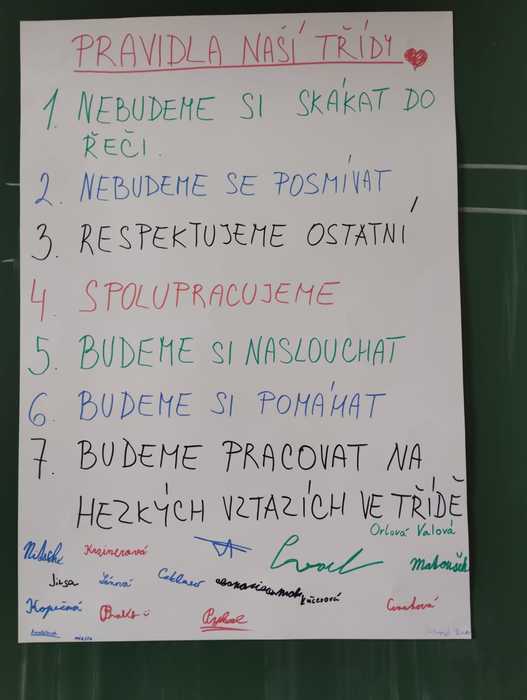 PRAVIDLA NAŠÍ TŘÍDY
1. NEBUDEME SI SKÁKAT DO
ŘEČI.
2. NEBUDEME SE POSMÍVAT
3. RESPEKTUJEME OSTATNÍ
4. SPOLUPRACUJEME
5. BUDEME SI NASLOUCHAT
6. BUDEME SI POMÁHAT
7. BUDEME PRACOVAT NA
HEZKÝCH VZTAZÍCH VE TŘÍDĚ
Orlová Valová
Krajnerová
Matoušek
Jirsa
Kučerová
Kopečná